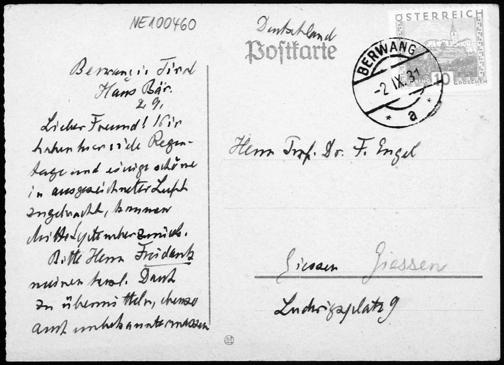 NE100460
Deutschland
Postkarte
ÖSTERREICH
10
BERWANG
-2.IX.31
* a *
Berwang i. Tirol
Haus Bär.
2.9.
Lieber Freund! Wir
haben hier viele Regen-
tage und einige schöne
in ausgezeichneter Luft
zugebracht, kommen
Mitte September zurück.
Bitte Herrn Frudentz
meinen herzl. Dank
zu übermitteln, ebenso
auch unbekannterweise
Herrn Prof. Dr. F. Engel
Giessen Giessen
Ludwigsplatz 9